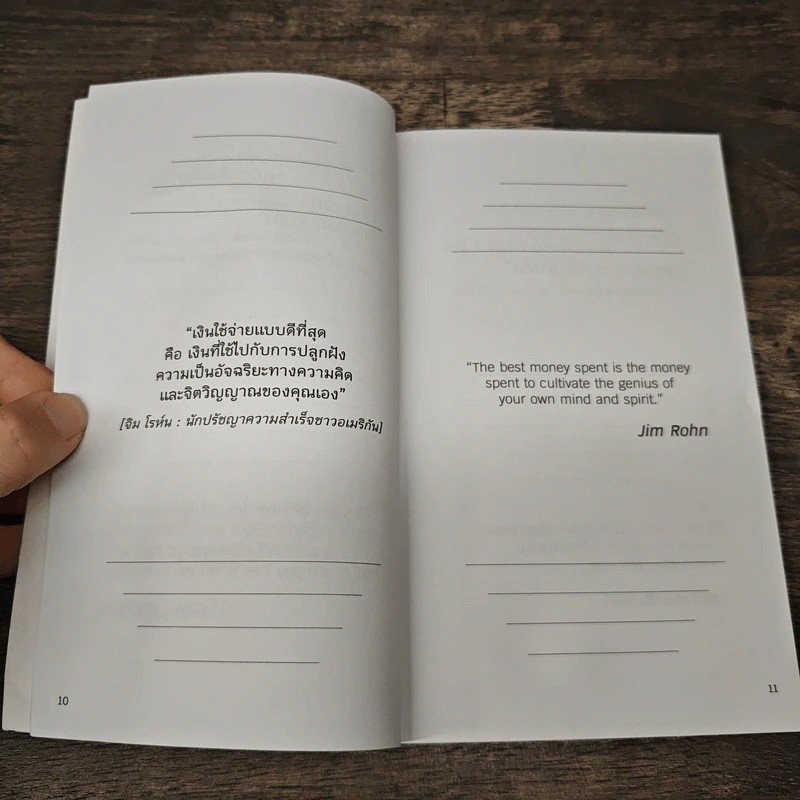 “เงินใช้จ่ายแบบดีที่สุด
คือ เงินที่ใช้ไปกับการปลูกฝัง
ความเป็นอัจฉริยะทางความคิด
และจิตวิญญาณของคุณเอง”
[จิม โรห์น : นักปรัชญาความสำเร็จชาวอเมริกัน]
10
“The best money spent is the money
spent to cultivate the genius of
your own mind and spirit.”
Jim Rohn
11